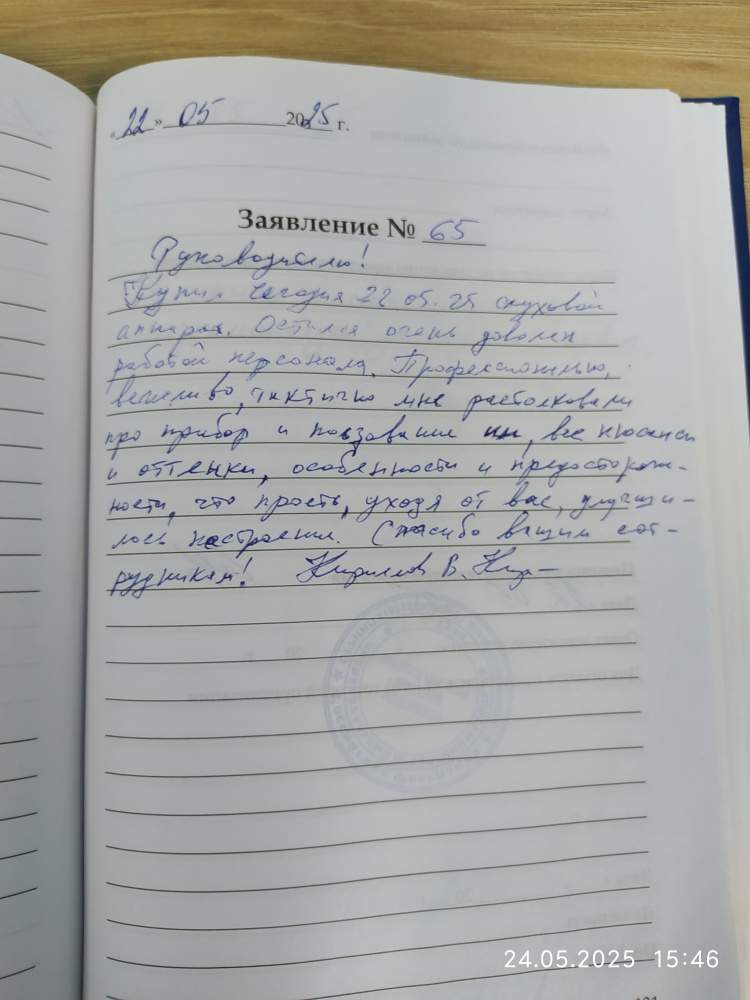 «22» 05 2025 г.
Заявление № 65
Руководителю!
Купил сегодня 22.05.25 слуховой
аппарат. Остался очень доволен
работой персонала. Профессионально,
вежливо, тактично мне растолковали
про прибор и ползование им, все нюансы
и оттенки, особенности и предосторож-
ности, что прость, уходя от вас, улучши-
лось настроение. Спасибо вашим сот-
рудникам! Кириллов В.
24.05.2025 15:46